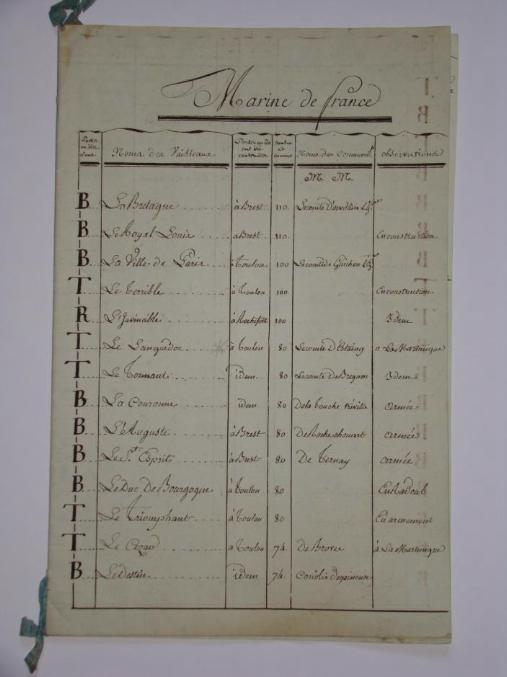 Marine de france
Noms des Vaisseaux observations
M. M.
B La Bretagne à Brest 110
B Le Royal Louis à Brest 110 En construction
B La Ville de Paris à Toulon 100 Le comte de Guichen
T Le Terrible à Toulon 100 En construction
R L'Invincible à Rochefort 100 Idem
T Le Languedoc à Toulon 80 Le comte D'Estaing à La Martinique
T Le Tonnant idem 80 Idem
B La Couronne idem 80 De la touche tréville armée
B L'Auguste à Brest 80 De Rochechouart armée
B Le St. Esprit à Brest 80 De Ternay armée
B Le Duc De Bourgogne à Toulon 80
T Le Triomphant à Toulon 80 En armement
T Le César à Toulon 74 De Broves à La Martinique
B Le Destin idem 74